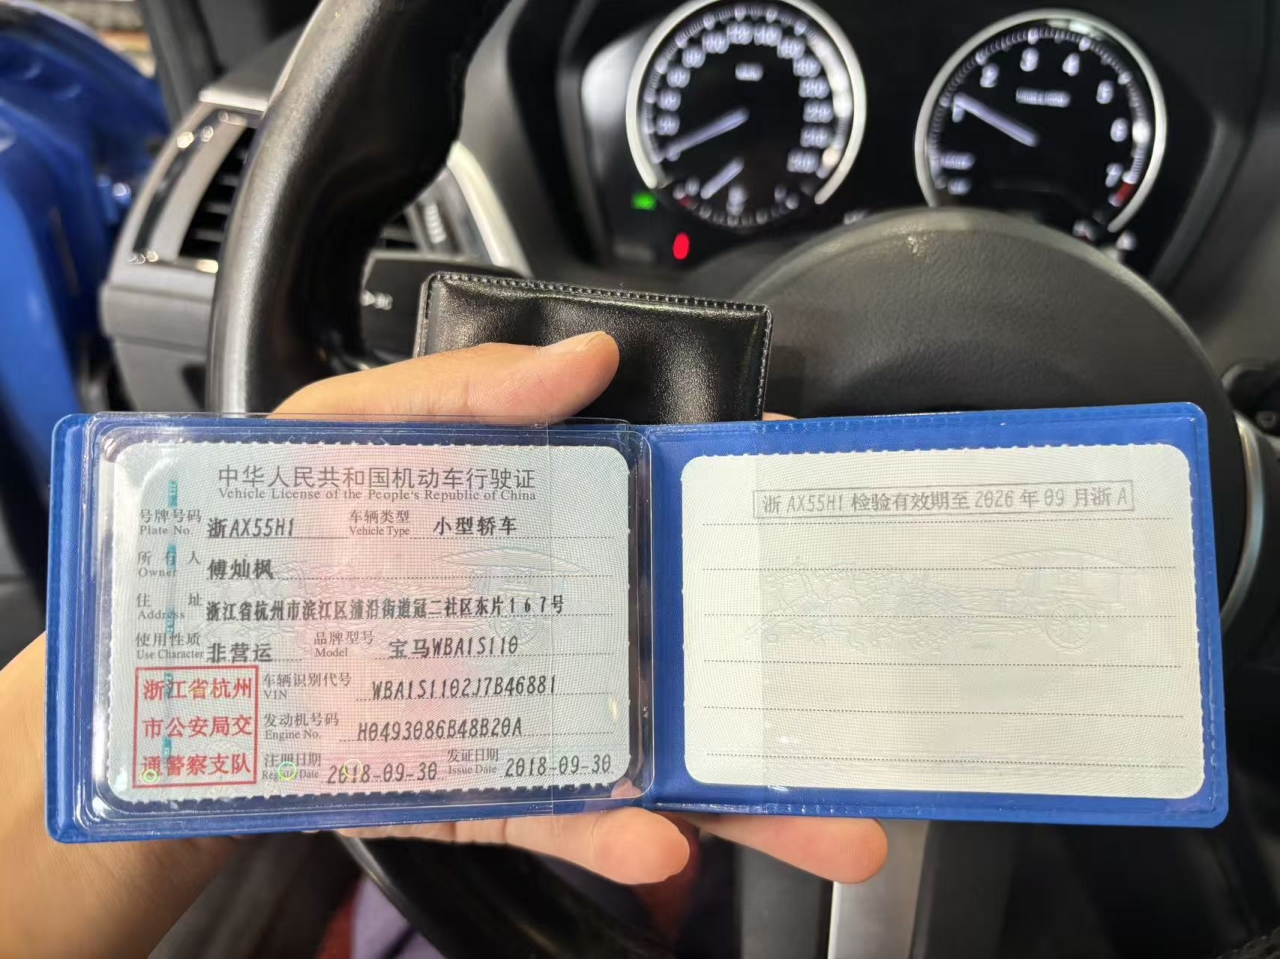 中华人民共和国机动车行驶证
Vehicle License of the People's Republic of China
号牌号码 浙AX55H1 车辆类型 小型轿车
Plate No. Vehicle Type
所有人 傅灿枫
Owner
住址 浙江省杭州市滨江区浦沿街道冠二社区东片167号
Address
使用性质 非营运 品牌型号 宝马WBA1S110
Use Character Model
浙江省杭州
市公安局交
通警察支队
车辆识别代号 WBA1S1102J7B46881
VIN
发动机号码 H0493086B48B20A
Engine No.
注册日期 2018-09-30 发证日期 2018-09-30
Register Date Issue Date
浙AX55H1检验有效期至2026年09月浙A
1
2
3
4
5
6
7